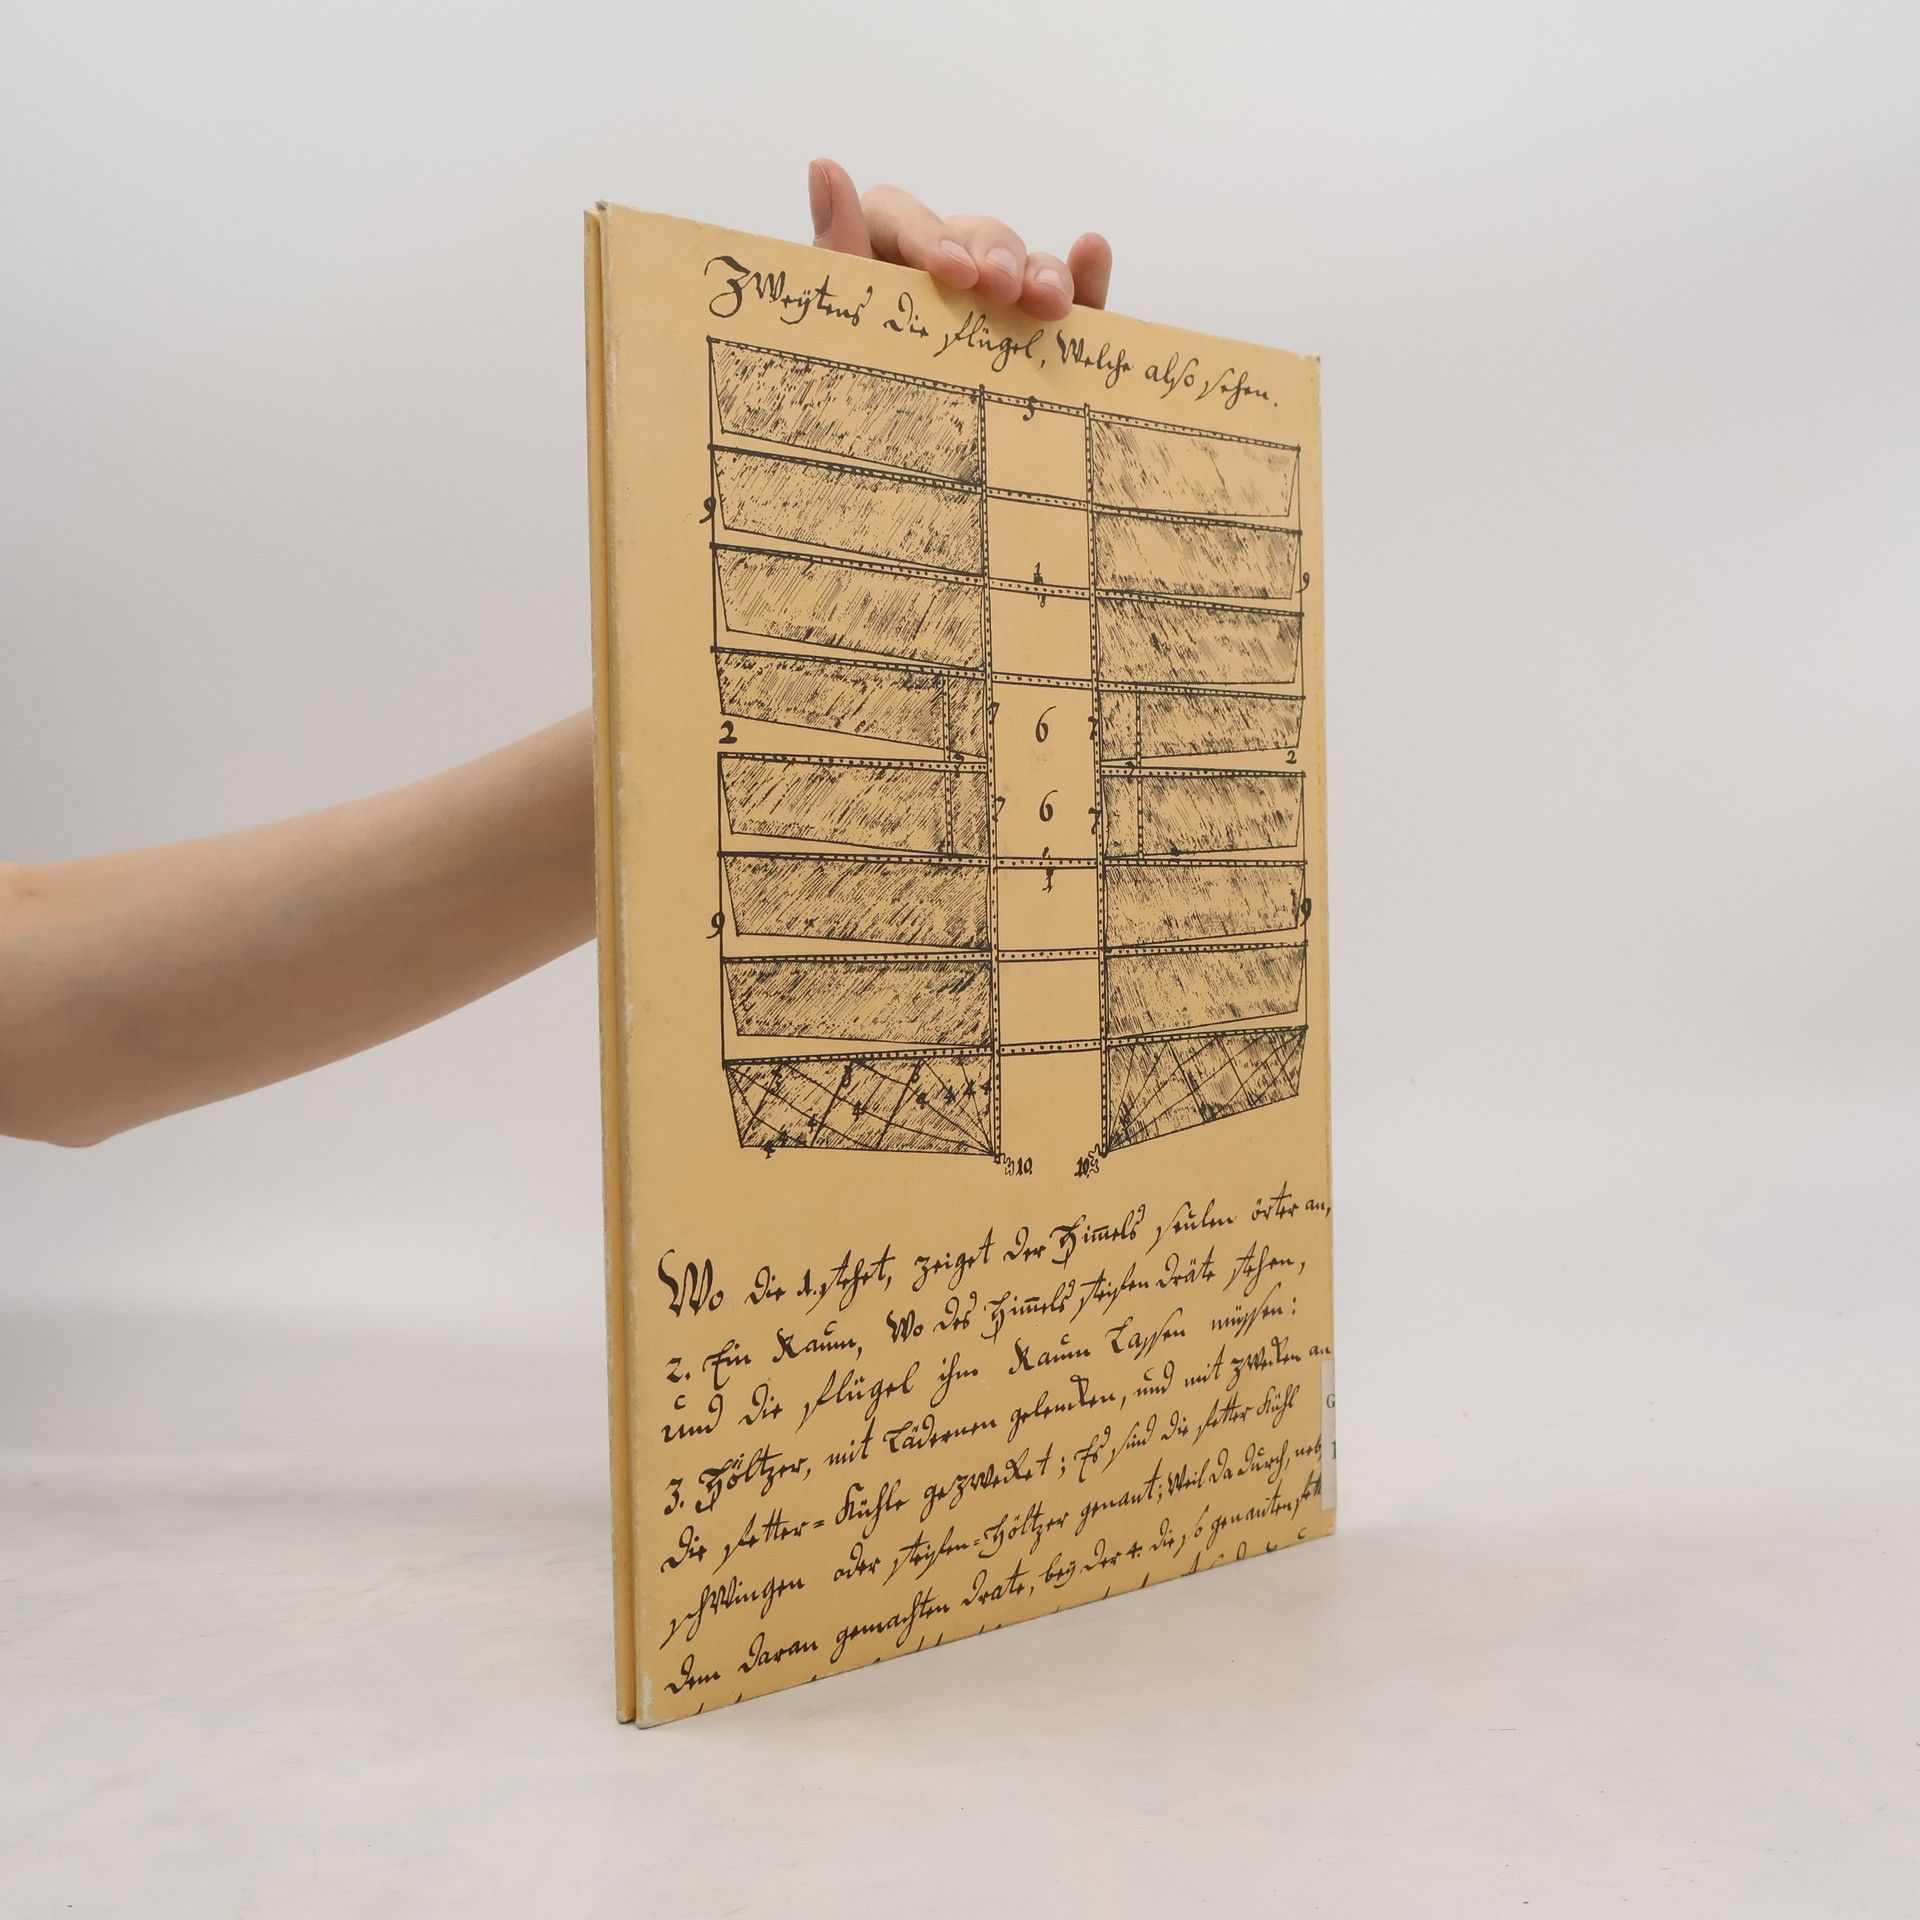 Zweÿtens die flügel, Welche also sehen.
5
9
1
9
2
7
6
7
2
3
7
6
7
1
9
9
3 3 3
4 4 4 4 4
4 4 4
10. 10.
Wo die 1. stehet, zeiget der Himmels seulen örter an,
2. Ein Raum, Wo des Himmels steifen dräte stehen,
und die flügel ihm Raum Lassen müssen:
3. Höltzer, mit Lädernen gelencken, und mit zwecken an
die fetter=Kühle gezwecket; Es sind die fetter Kühl
schwingen oder steifen=Höltzer genant; Weil da durch, neb
dem daran gemachten drate, beÿ der 4. die so genanten fett
G
1